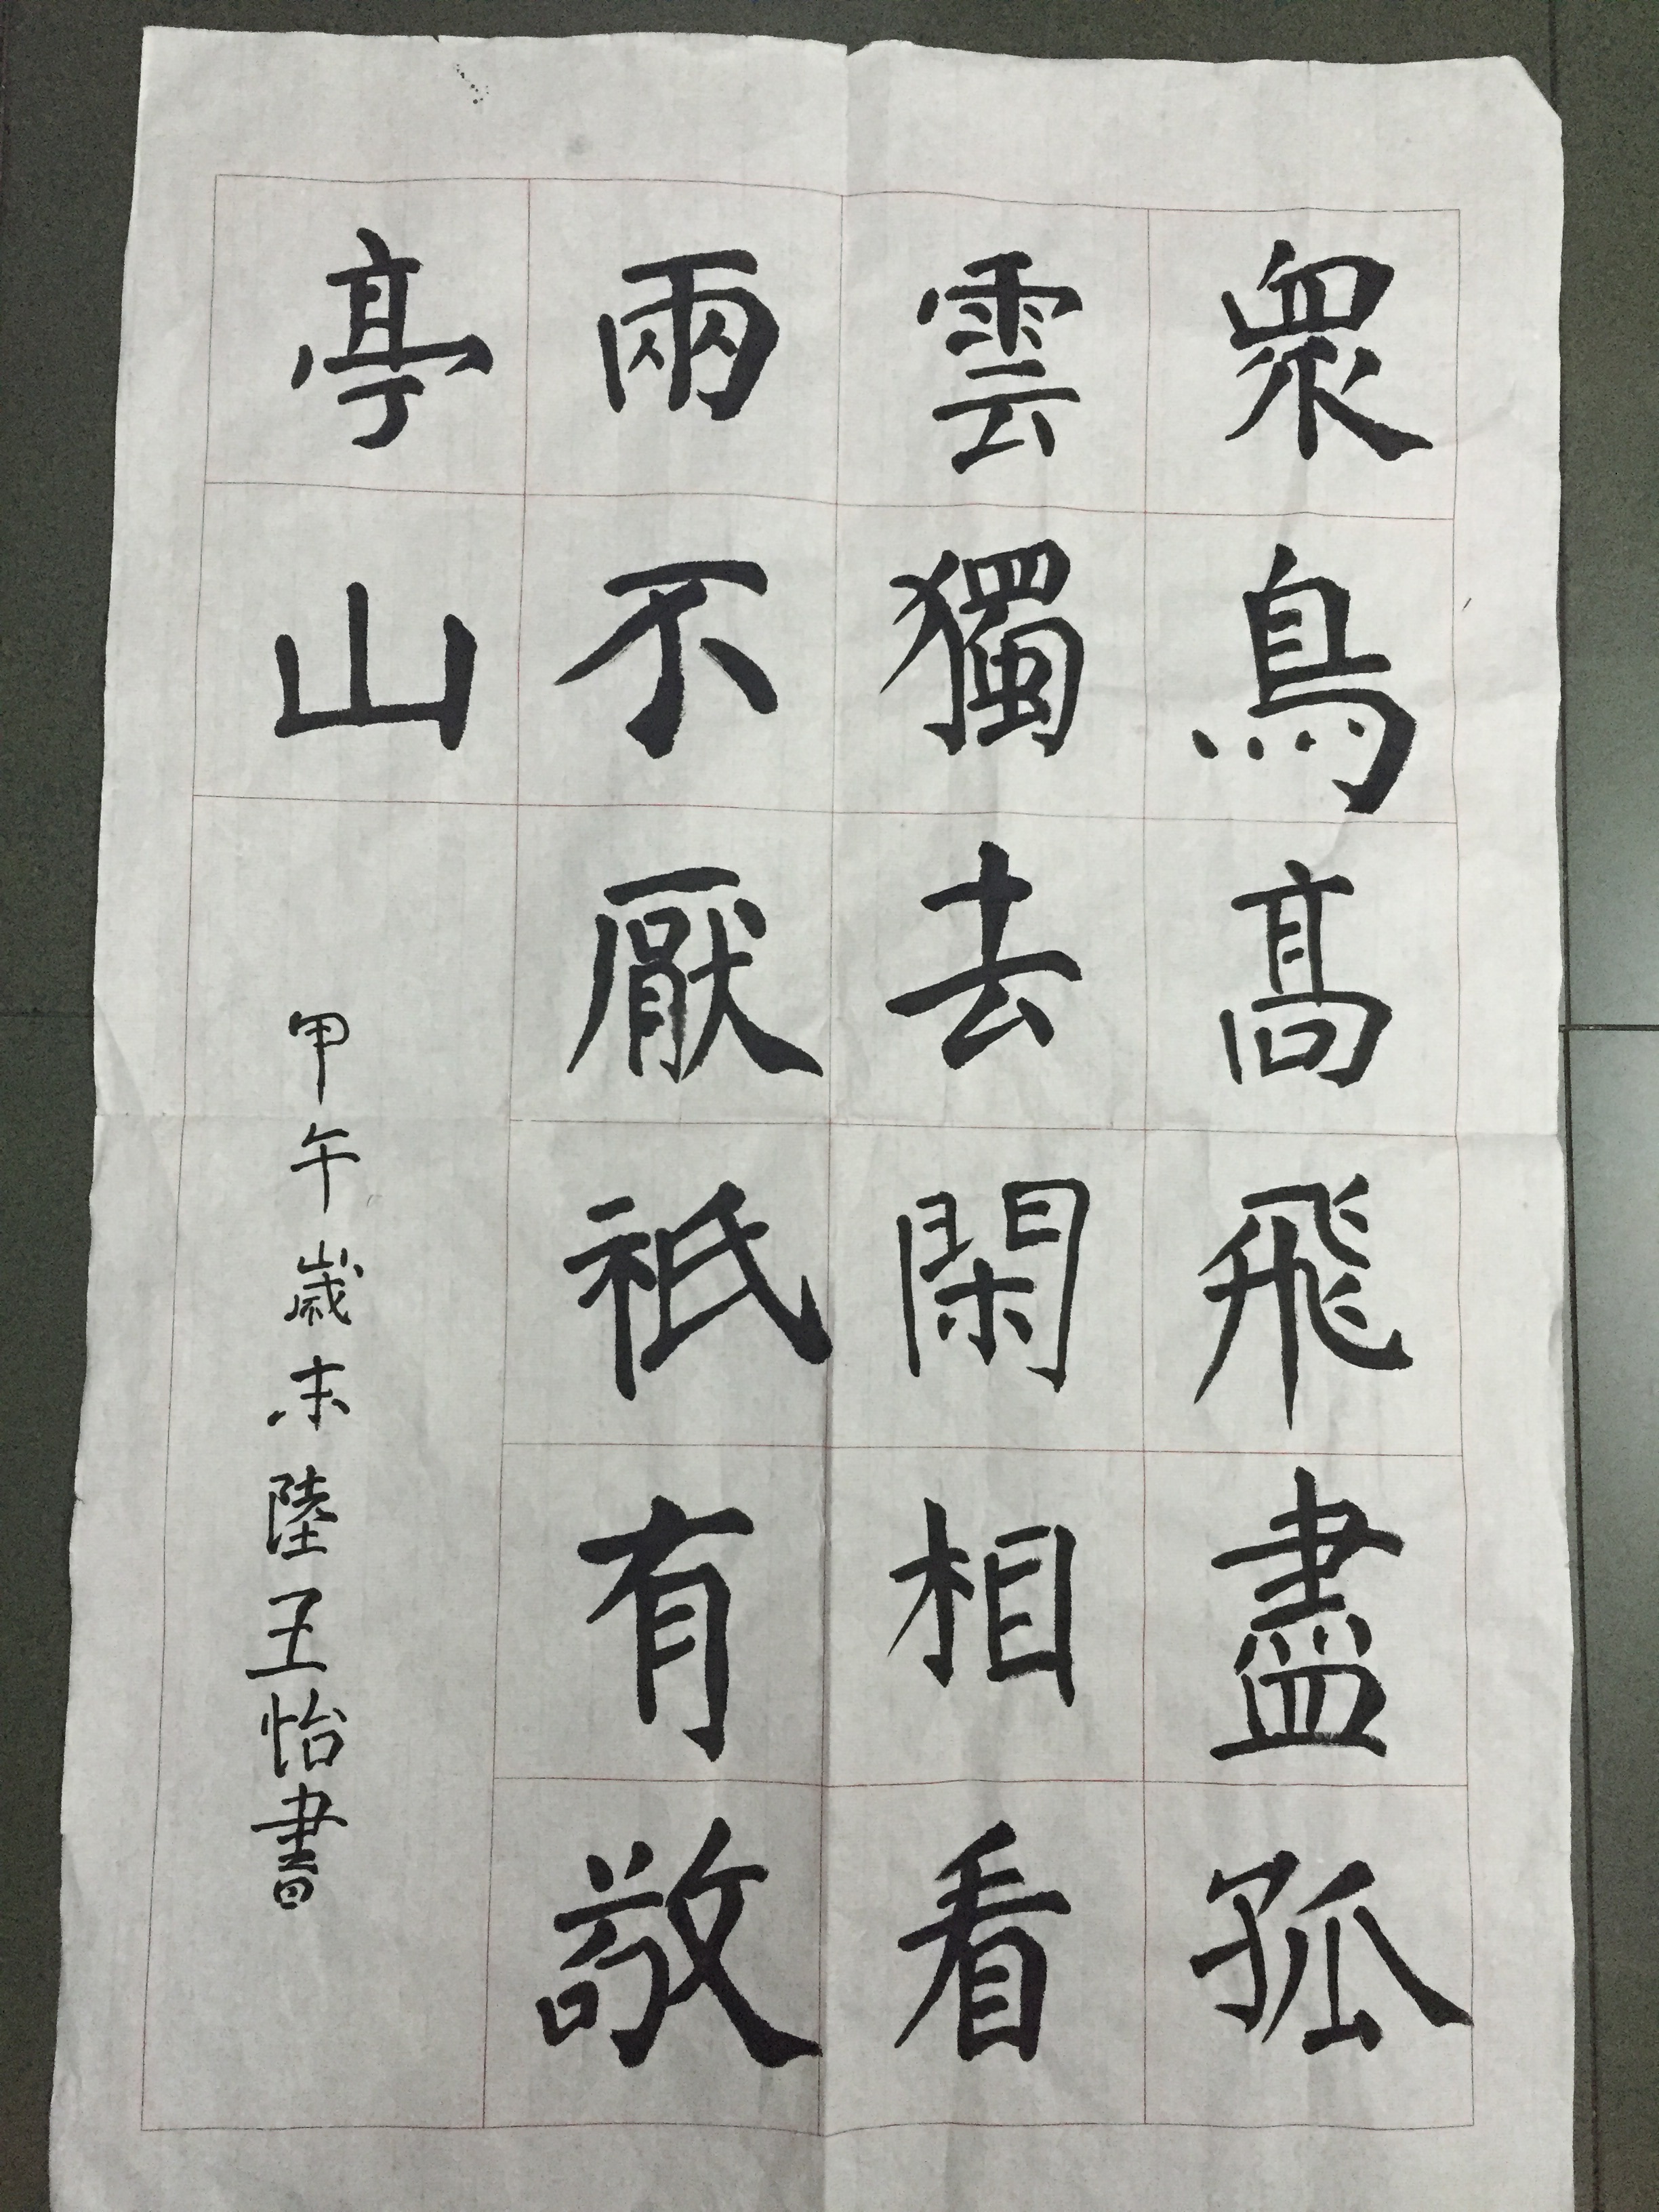 衆鳥高飛盡孤
雲獨去閑相看
兩不厭祗有敬
亭山
甲午歲末陸玉怡書